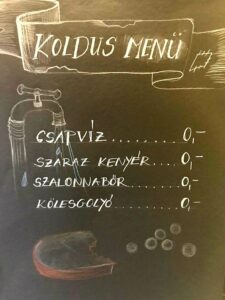 KOLDUS MENÜ
CSAPVÍZ........0,-
SZÁRAZ KENYÉR....0,-
SZALONNABŐR.....0,-
KÖLESGOLYÓ......0,-